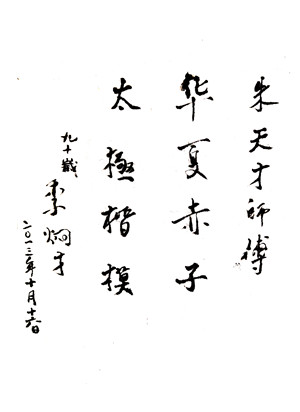 朱天才師傅
华夏赤子
太極楷模
九十歲
二〇一三年十月十六日